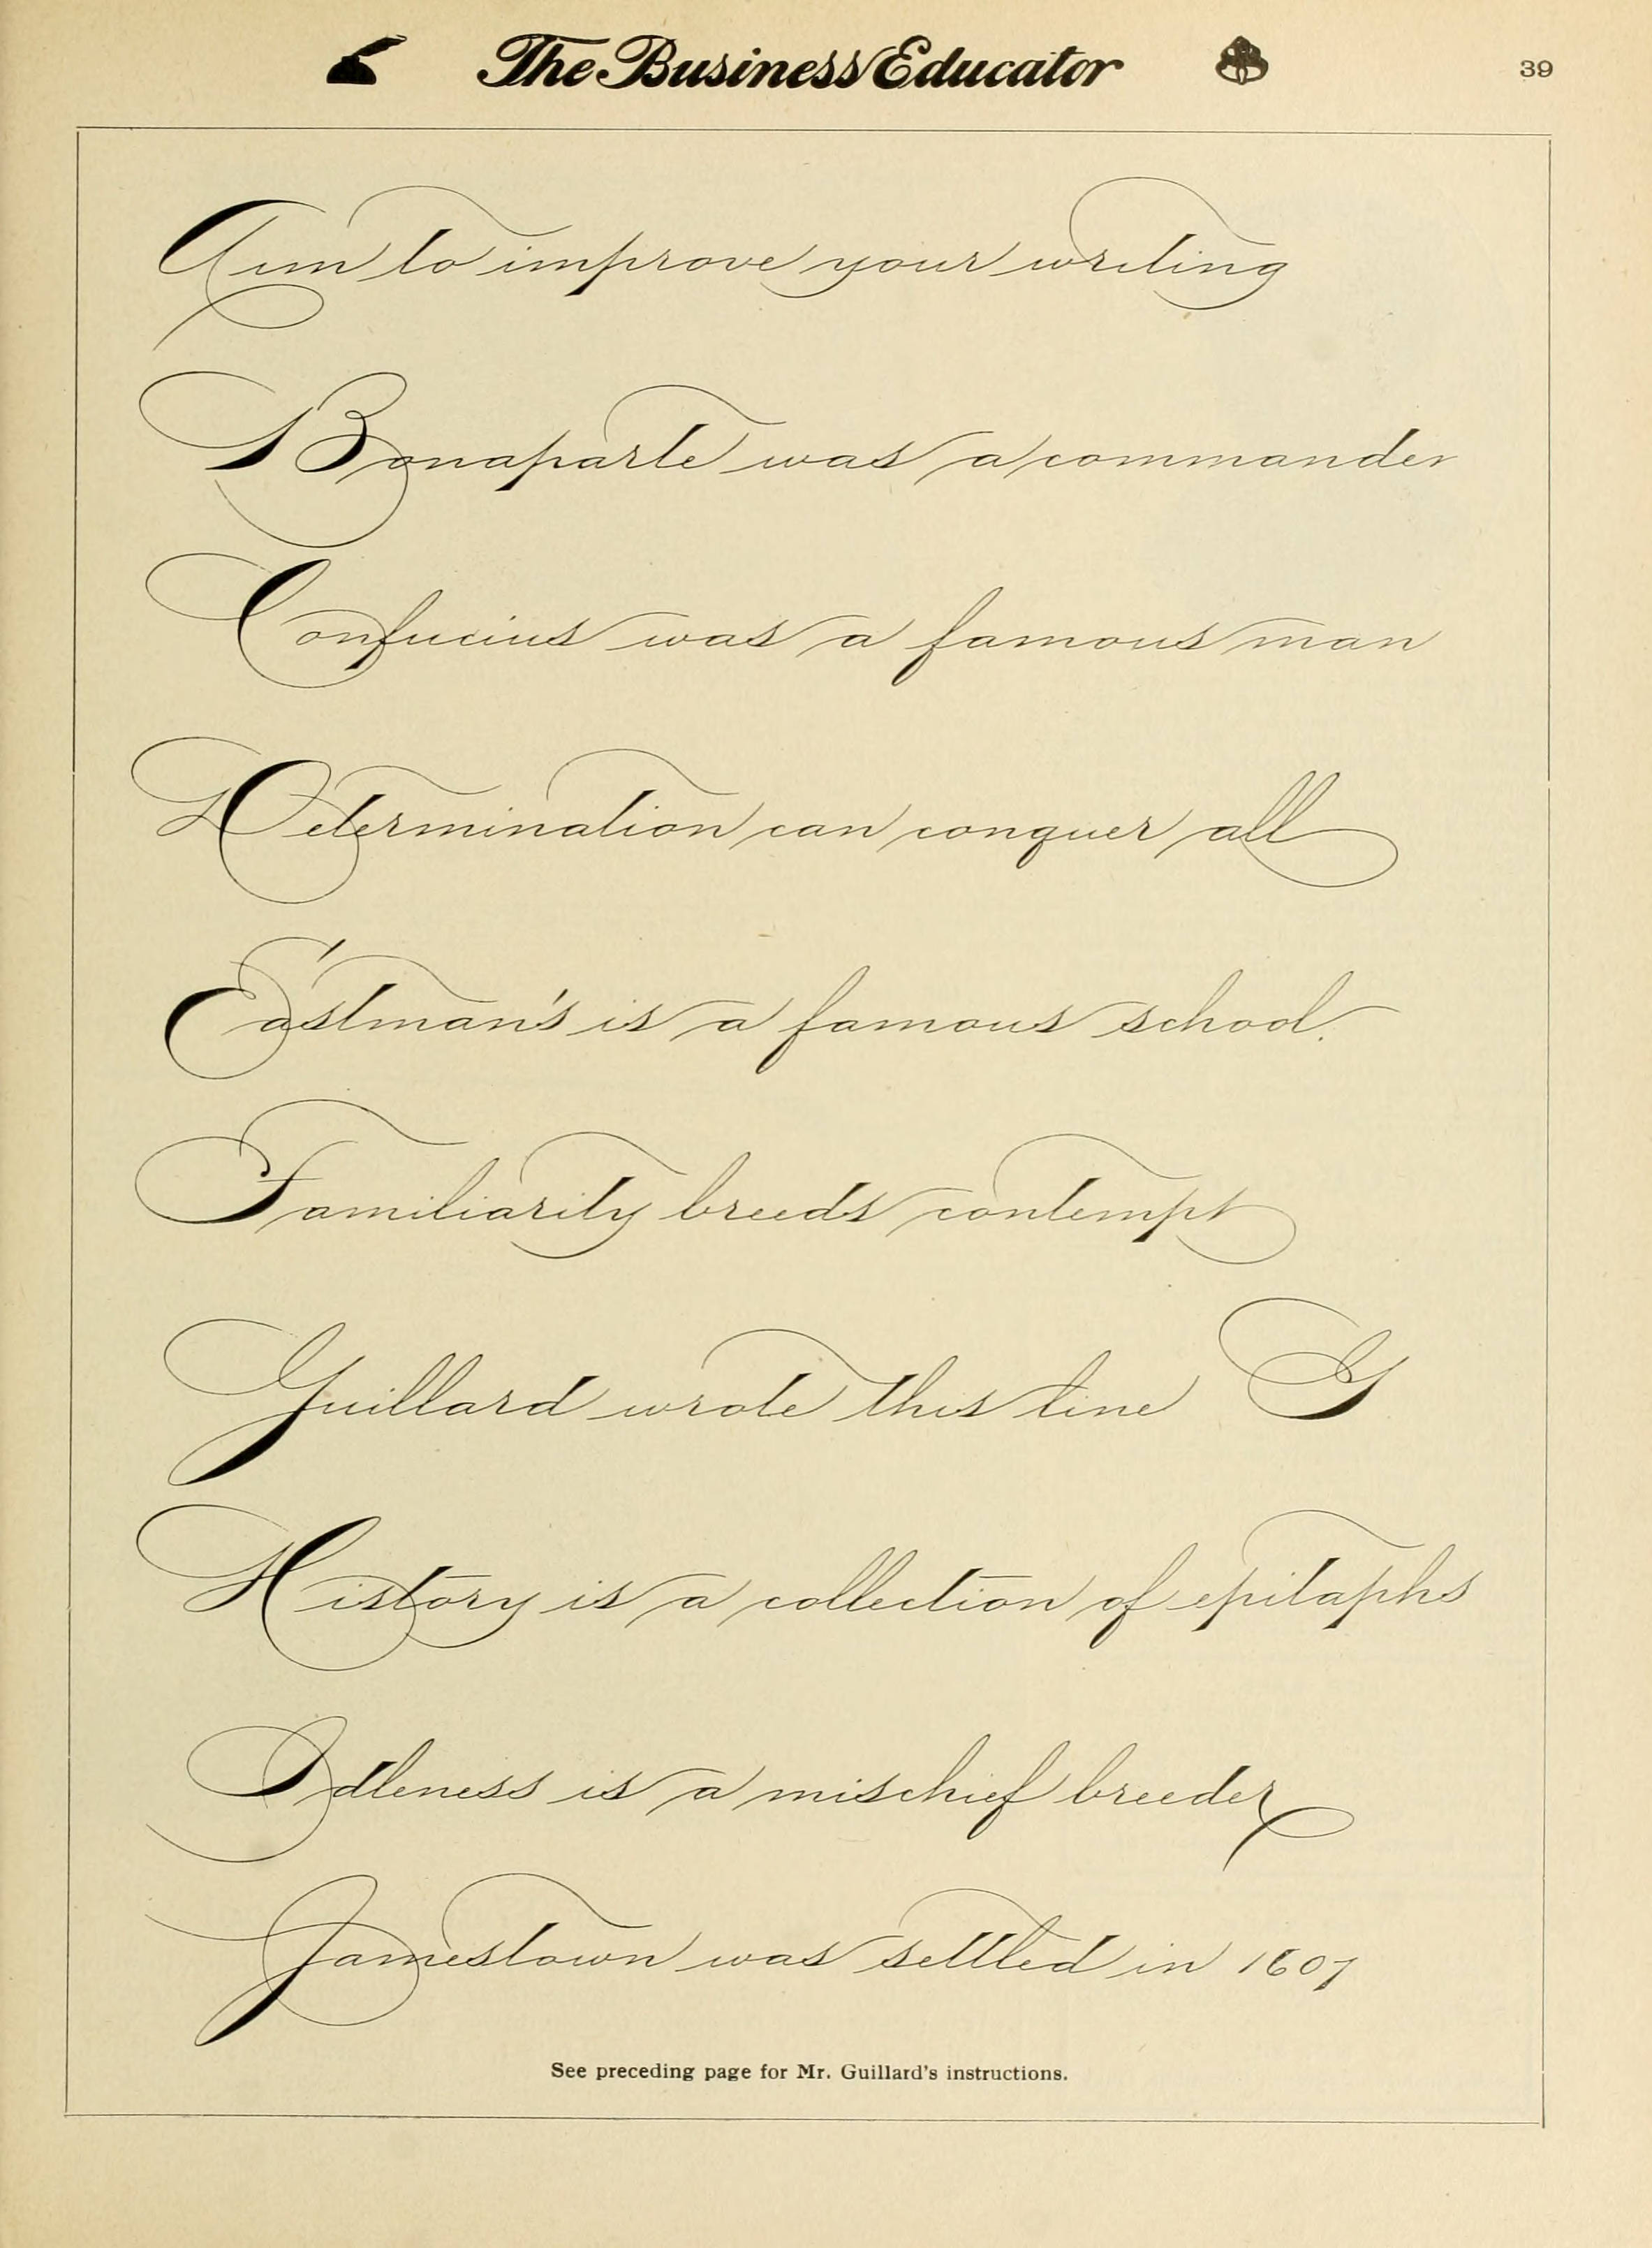 The Business Educator 39
Aim to improve your writing
Bonaparte was a commander
Confucius was a famous man
Determination can conquer all
Eastman's is a famous school.
Familiarity breeds contempt
Guillard wrote this line G
History is a collection of epitaphs
Idleness is a mischief breeder
Jamestown was settled in 1607
See preceding page for Mr. Guillard's instructions.